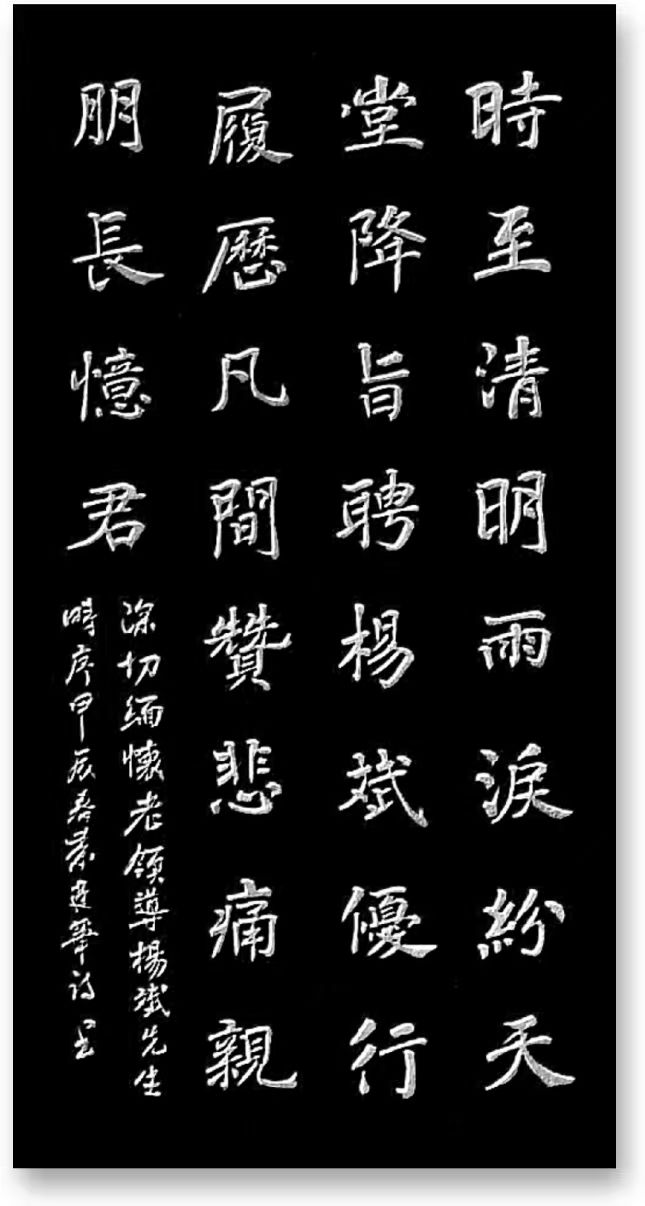 時至清明雨淚紛天
堂降旨聘楊斌優行
履歷凡間贊悲痛親
朋長憶君
深切緬懷老領導楊斌先生
時序甲辰春葉建華詩書